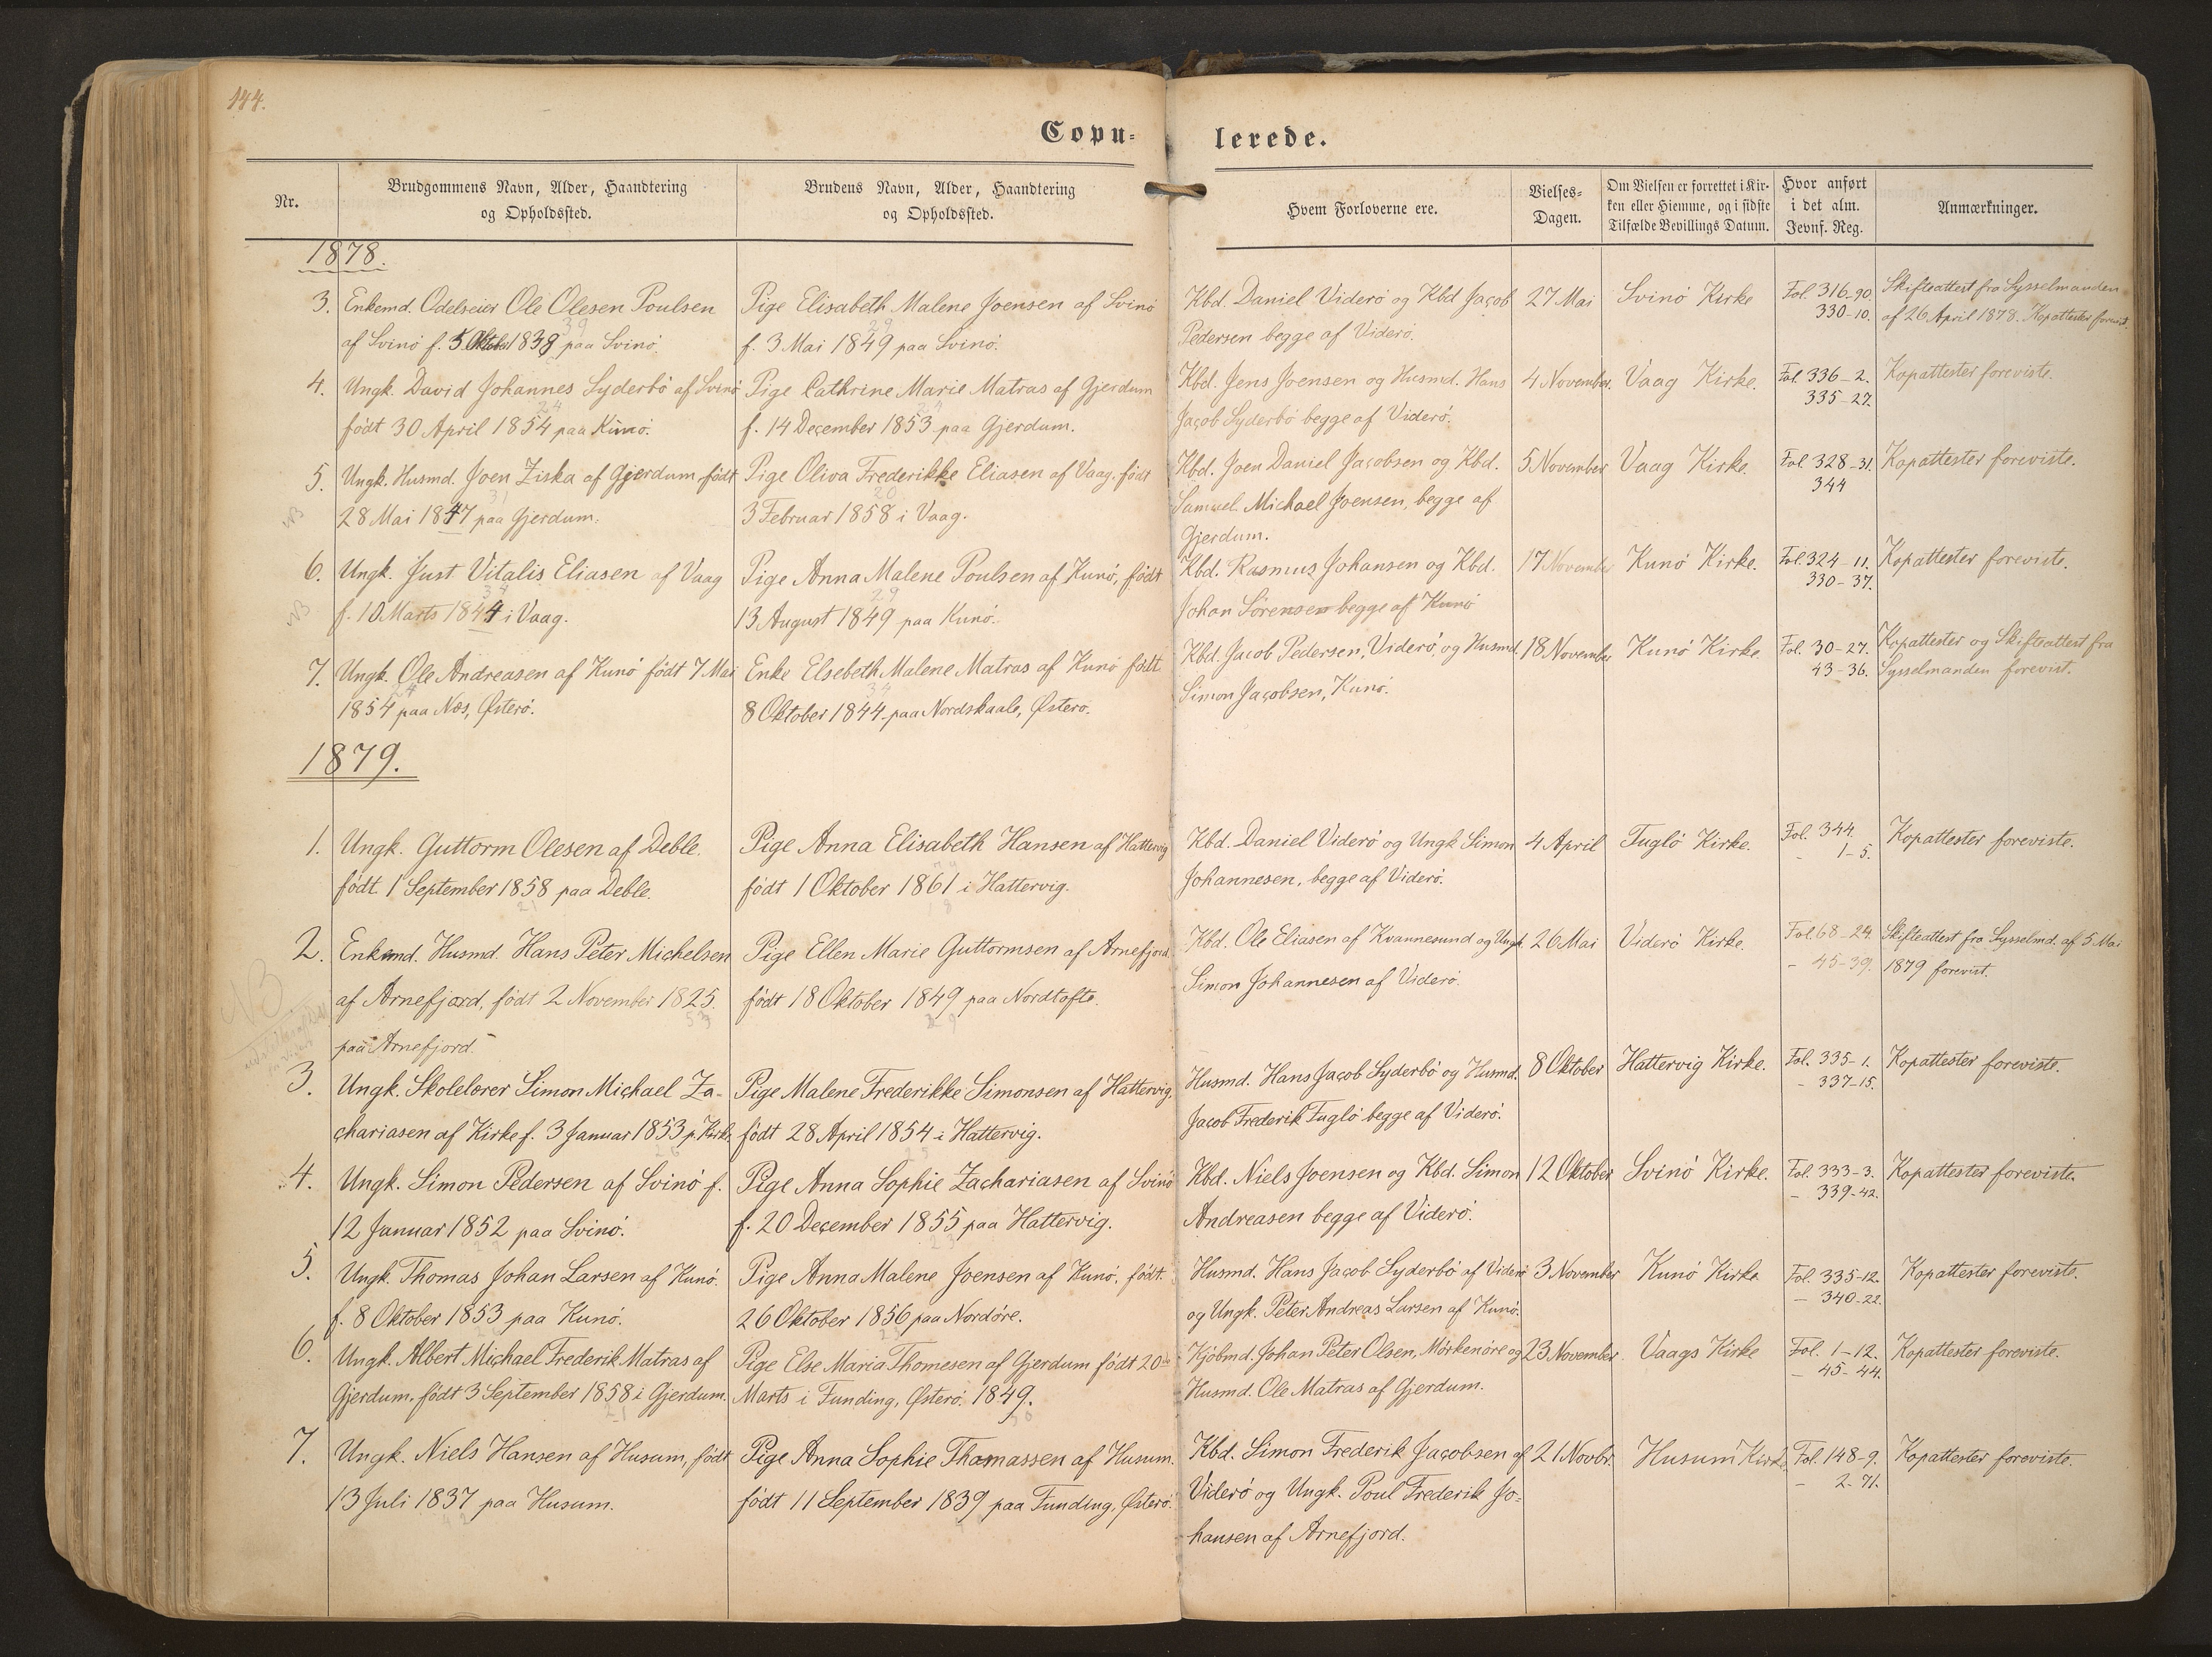 144.
Copu-
lerede.
Nr.
Brudgommens Navn, Alder, Haandtering
og Opholdssted.
Brudens Navn, Alder, Haandtering
og Opholdssted.
Hvem Forloverne ere.
Vielses-
Dagen.
Om Vielsen er forrettet i Kir-
ken eller Hjemme, og i sidste
Tilfælde Bevillings Datum.
Hvor anført
i det alm.
Jevnf. Reg.
Anmærkninger.
1878.
3.
Enkemd. Odelseier Ole Olesen Poulsen
af Svinö f. 5 Oktober 1838 paa Svinö.
39
Pige Elisabeth Malene Joensen af Svinö
f. 3 Mai 1849 paa Svinö.
29
Kbd. Daniel Viderö og Kbd Jacob
Pedersen begge af Viderö.
27 Mai
Svinö Kirke
Fol. 316-90.
330-10.
Skifteattest fra Sysselmanden
af 26 April 1878. Kopattester forevist.
4.
Ungk. David Johannes Syderbö af Svinö
født 30 April 1854 paa Kunö.
24
Pige Cathrine Marie Matras af Gjerdum
f. 14 December 1853 paa Gjerdum.
24
Kbd. Jens Joensen og Husmd. Hans
Jacob Syderbö begge af Viderö.
4 November.
Vaag Kirke.
Fol. 336-2.
335-27.
Kopattester foreviste.
5.
NB
Ungk. Husmd. Joen Ziska af Gjerdum født
28 Mai 1847 paa Gjerdum.
31
Pige Oliva Frederikke Eliasen af Vaag. født
3 Februar 1858 i Vaag.
20
Kbd. Joen Daniel Jacobsen og Kbd.
Samuel Michael Joensen, begge af
Gjerdum.
5 November
Vaag Kirke.
Fol. 328-31.
344
Kopattester foreviste.
6.
NB
Ungk. Just Vitalis Eliasen af Vaag
f. 10 Marts 1844 i Vaag.
34
Pige Anna Malene Poulsen af Kunö, født
13 August 1849 paa Kunö.
29
Kbd. Rasmus Johansen og Kbd.
Johan Sörensen begge af Kunö
17 November
Kunö Kirke.
Fol. 324-11.
330-37.
Kopattester foreviste.
7.
Ungk. Ole Andreasen af Kunö født 7 Mai
1854 paa Næs, Østerö.
24
Enke Elsebeth Malene Matras af Kunö født
8 Oktober 1844 paa Nordskaale, Østerö.
34
Kbd. Jacob Pedersen, Viderö, og Husmd.
Simon Jacobsen, Kunö.
18 November
Kunö Kirke.
Fol. 30-27.
43-36.
Kopattester og Skifteattest fra
Sysselmanden forevist.
1879.
1.
Ungk. Guttorm Olesen af Deble.
født 1 September 1858 paa Deble.
21
Pige Anna Elisabeth Hansen af Hattervig
født 1 Oktober 1861 i Hattervig.
18
Kbd. Daniel Viderö og Ungk Simon
Johannesen, begge af Viderö.
4 April
Fuglö Kirke.
Fol. 344.
- 1-5.
Kopattester foreviste.
2.
NB
Enkemd. Husmd. Hans Peter Michelsen
af Arnefjord, født 2 November 1825.
53
paa Arnefjord.
Pige Ellen Marie Guttormsen af Arnefjord.
født 18 Oktober 1849 paa Nordtofte.
29
Kbd. Ole Eliasen af Kvannesund og Ungk.
Simon Johannesen af Viderö.
26 Mai
Viderö Kirke.
Fol. 68-24.
- 45-39.
Skifteattest fra Sysselmd. af 5 Mai
1879 forevist.
3.
Ungk. Skolelærer Simon Michael Za-
chariasen af Kirke f. 3 Januar 1853 p. Kirke
Pige Malene Frederikke Simonsen af Hattervig.
født 28 April 1854 i Hattervig.
Husmd. Hans Jacob Syderbö og Husmd.
Jacob Frederik Fuglö begge af Viderö.
8 Oktober
Hattervig Kirke.
Fol. 335-1.
- 337-15.
Kopattester foreviste.
4.
Ungk. Simon Pedersen af Svinö f.
12 Januar 1852 paa Svinö.
Pige Anna Sophie Zachariasen af Svinö
f. 20 December 1855 paa Hattervig.
Kbd. Niels Joensen og Kbd. Simon
Andreasen begge af Viderö.
12 Oktober
Svinö Kirke.
Fol. 333-3.
- 339-42.
Kopattester foreviste.
5.
Ungk. Thomas Johan Larsen af Kunö.
f. 8 Oktober 1853 paa Kunö.
Pige Anna Malene Joensen af Kunö, født
26 Oktober 1856 paa Nordöre.
Husmd. Hans Jacob Syderbö af Viderö
og Ungk. Peter Andreas Larsen af Kunö.
3 November
Kunö Kirke
Fol. 335-12.
- 340-22.
Kopattester foreviste.
6.
Ungk. Albert Michael Frederik Matras af
Gjerdum, født 3 September 1858 i Gjerdum.
21
Pige Else Maria Thomesen af Gjerdum født 20de
Marts i Funding, Østerö. 1849.
30
Kjöbmd. Johan Peter Olsen, Mörkenöre og
Husmd. Ole Matras af Gjerdum.
23 November
Vaags Kirke
Fol. 1-12.
- 45-44.
Kopattester foreviste.
7.
Ungk. Niels Hansen af Husum, født
13 Juli 1837 paa Husum.
Pige Anna Sophie Thomassen af Husum.
født 11 September 1839 paa Funding, Østerö.
Kbd. Simon Frederik Jacobsen af
Viderö og Ungk. Poul Frederik Jo-
hansen af Arnefjord.
21 Novbr.
Husum Kirke
Fol. 148-9.
- 2-71.
Kopattester foreviste.